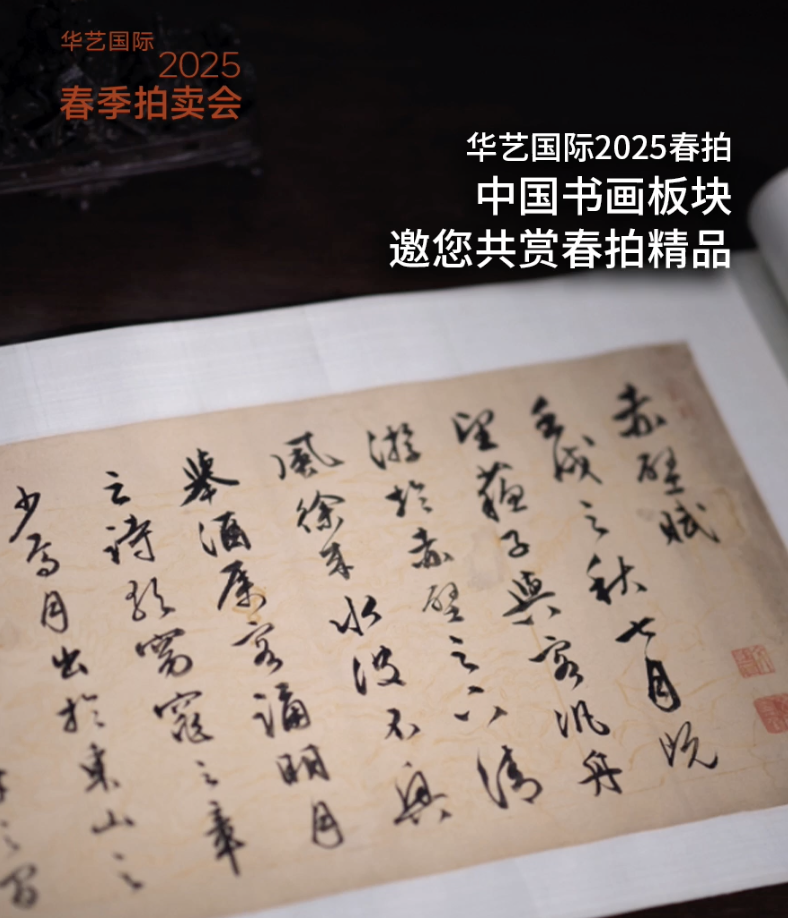 华艺国际
2025
春季拍卖会
华艺国际2025春拍
中国书画板块
邀您共赏春拍精品
赤壁賦
壬戌之秋七月既
望蘇子與客汎舟
游於赤壁之下清
風徐來水波不興
舉酒屬客誦明月
之詩歌窈窕之章
少焉月出於東山之